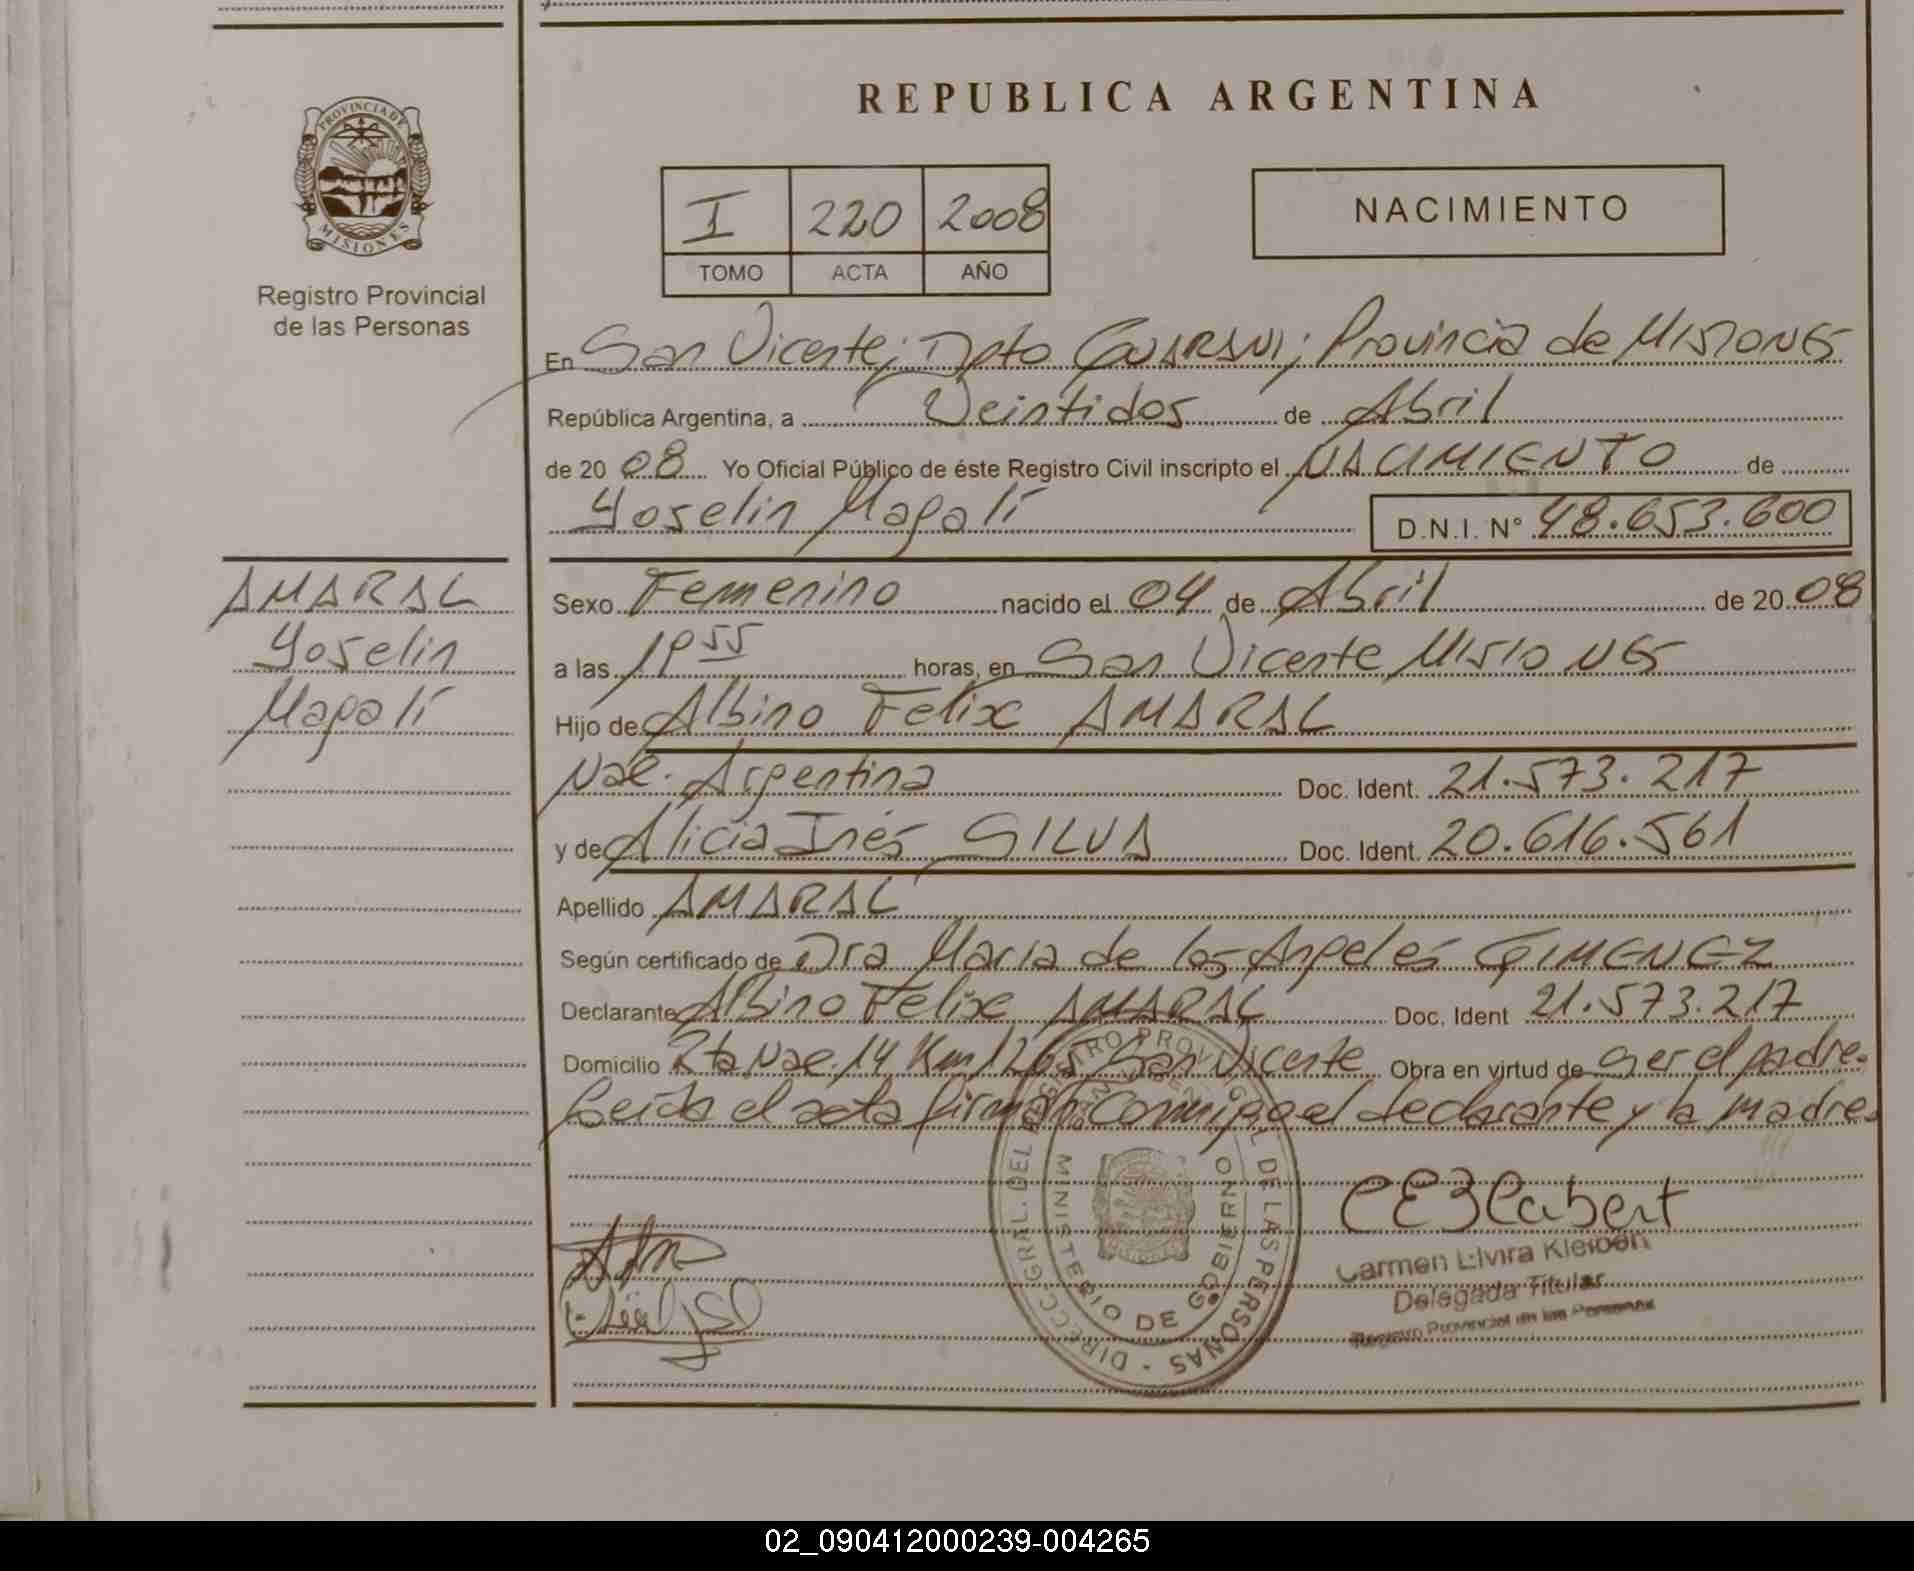 REPUBLICA ARGENTINA
PROVINCIA DE
MISIONES
Registro Provincial
de las Personas
I 220 2008
TOMO ACTA AÑO
NACIMIENTO
En San Vicente; Dpto GUARANI; Provincia de MISIONES
República Argentina, a Veintidos de Abril
de 2008 Yo Oficial Público de éste Registro Civil inscripto el NACIMIENTO de
Yoselin Magalí D.N.I. N° 48.653.600
AMARAL
Yoselin
Magalí
Sexo Femenino nacido el 04 de Abril de 2008
a las 19 55 horas, en San Vicente MISIONES
Hijo de Albino Felix AMARAL
Nac. Argentina Doc. Ident. 21.573.217
y de Alicia Inés SILVA Doc. Ident. 20.616.561
Apellido AMARAL
Según certificado de Dra Maria de los Angeles GIMENEZ
Declarante Albino Felix AMARAL Doc. Ident 21.573.217
Domicilio Rta Nac. 14 Km San Vicente Obra en virtud de ser el padre.
Leída el acta firman conmigo el declarante y la madre.
DIRECC. GRAL. DEL REGISTRO PROVINCIAL DE LAS PERSONAS
MINISTERIO DE GOBIERNO
Carmen Elvira
Delegada Titular
Registro Provincial de las Personas
02_090412000239-004265